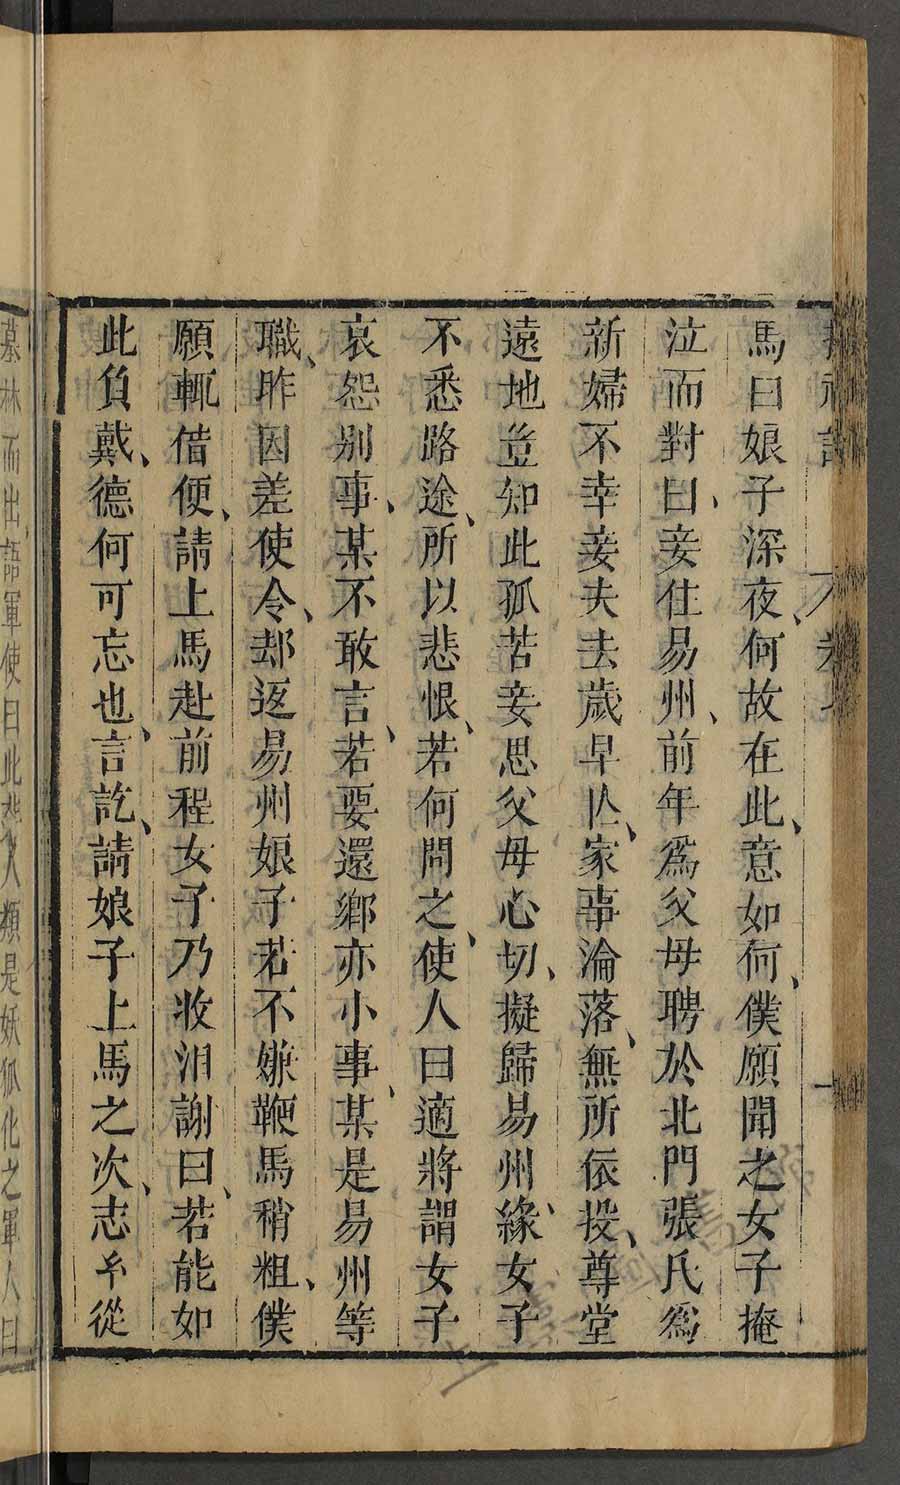 馬曰娘子深夜、何故在此、意如何、僕願聞之女子掩
泣而對曰、妾住易州、前年爲父母聘於北門張氏爲
新婦不幸妾夫去歲早亾、家事淪落、無所依投、尊堂
遠地豈知此孤苦妾思父母心切、擬歸易州、緣女子
不悉路途、所以悲恨、若何問之、使人曰適將謂女子
哀怨别事、某不敢言、若要還鄉亦小事、某是易州等
職、昨因差使令、却返易州娘子若不嫌鞭馬稍粗、僕
願輒借便、請上馬赴前程女子乃收泪謝曰、若能如
此負戴、德何可忘也、言訖、請娘子上馬之次、志𢆯從
墓林而出、語軍使曰此非人類是妖狐化之軍人曰